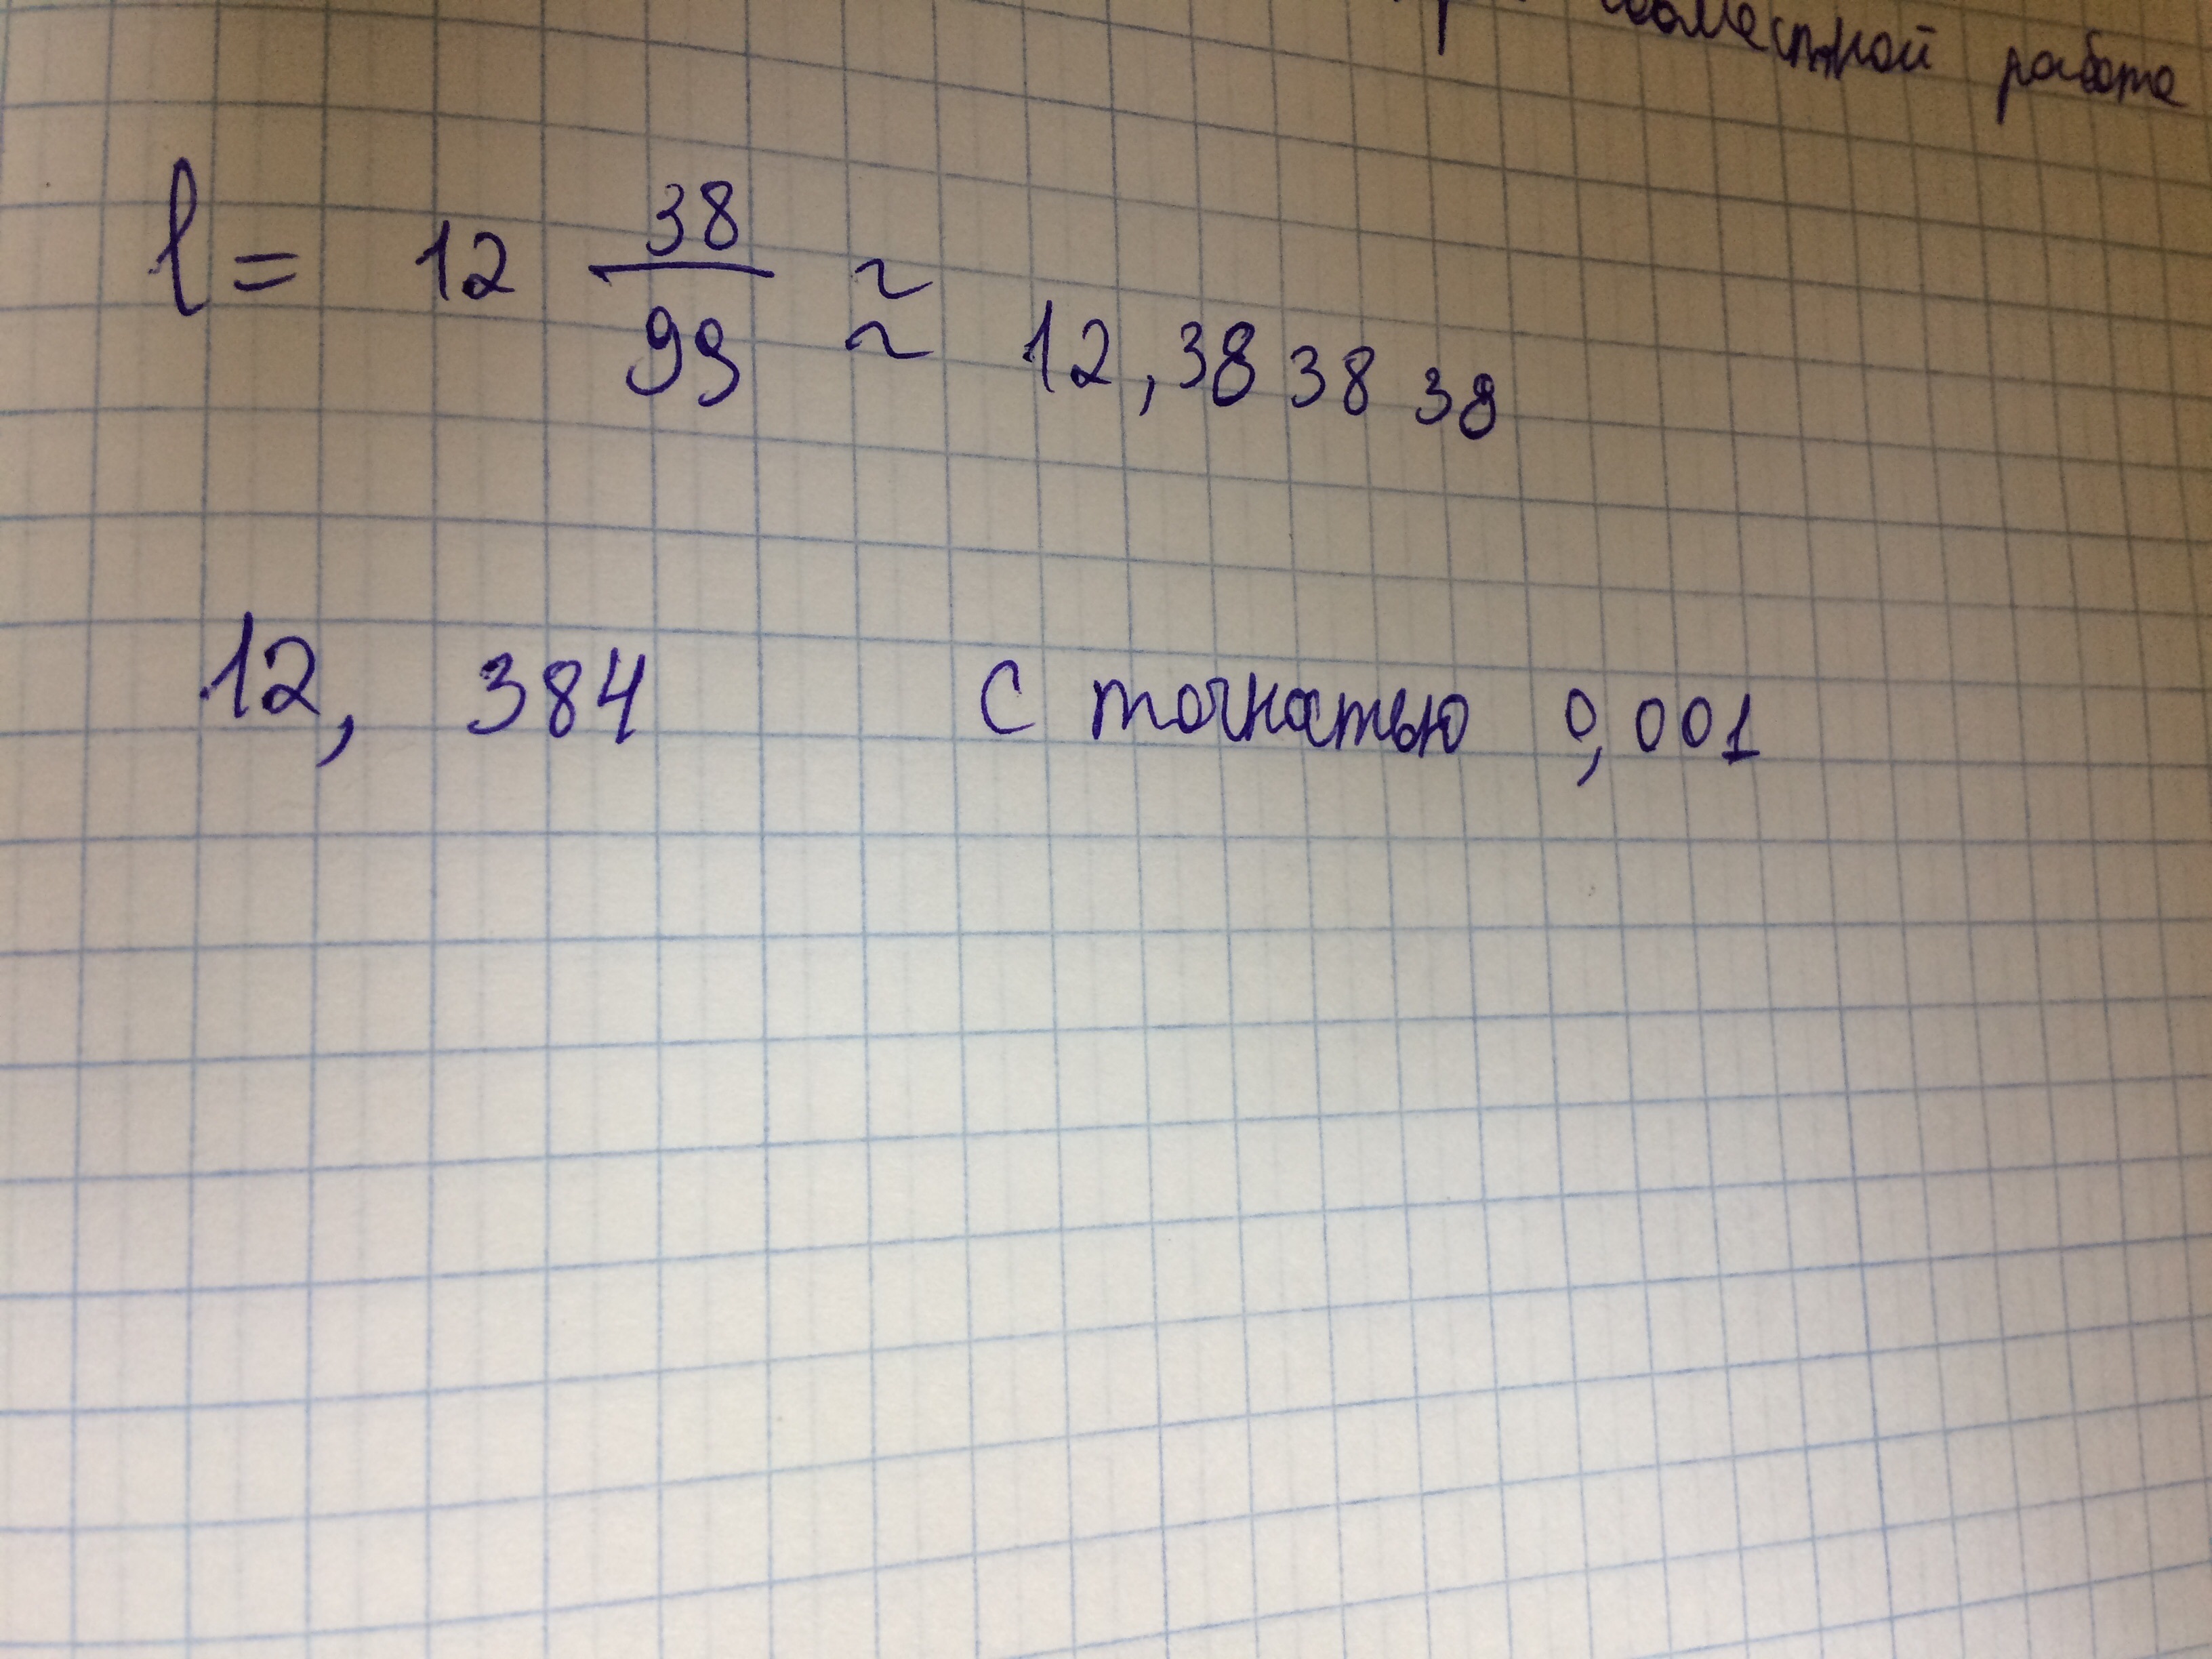 совместной работе
l = 12 38/99 ≈ 12,383838
12, 384 с точнатью 0,001